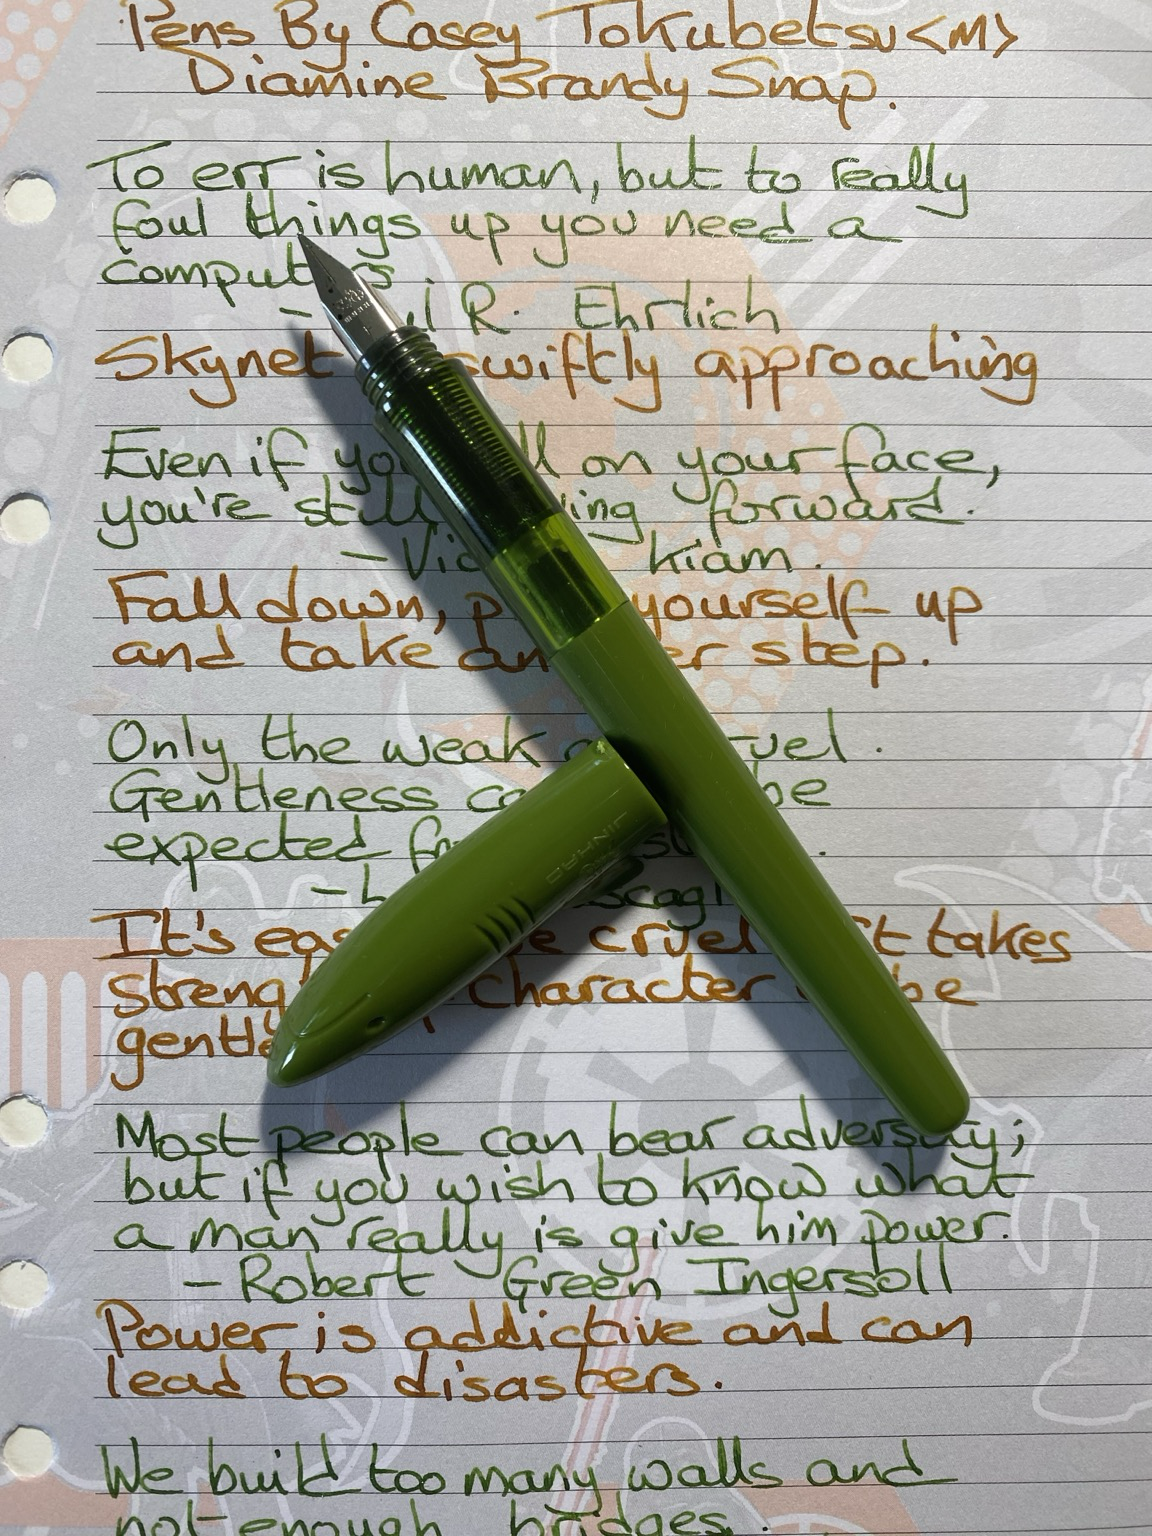 Pens By Casey Tokubetsu <M>
Diamine Brandy Snap.
To err is human, but to really
foul things up you need a
computers
- R. Ehrlich
Skynet swiftly approaching
Even if you on your face,
you're still forward.
- Kiam.
Fall down, yourself up
and take step.
Only the weak
Gentleness be
expected
-
It's cruel takes
character be
Most people can bear adversity;
but if you wish to know what
a man really is give him power.
- Robert Green Ingersoll
Power is addictive and can
lead to disasters.
We build too many walls and
not enough bridges.
JINHAO